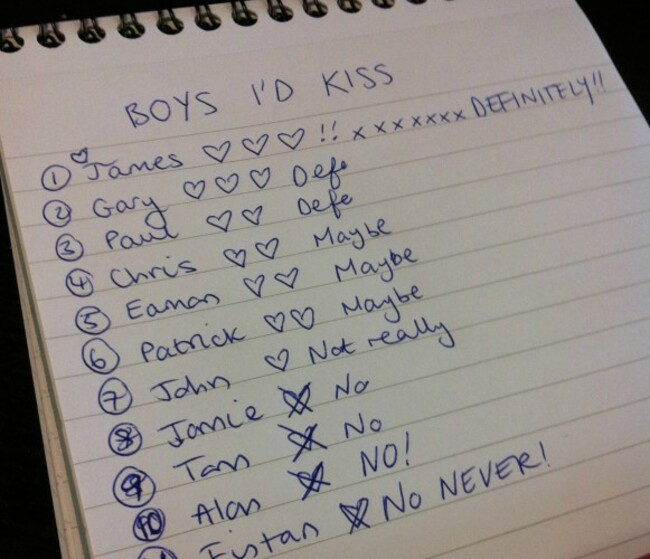 BOYS I'D KISS
① James ♡ ♡ ♡ !! x x x x x x x DEFINITELY!!
② Gary ♡ ♡ ♡ Defo
③ Paul ♡ ♡ Defo
④ Chris ♡ ♡ Maybe
⑤ Eaman ♡ ♡ Maybe
⑥ Patrick ♡ ♡ Maybe
⑦ John ♡ Not really
⑧ Jamie No
⑨ No
⑩ Alan NO!
No NEVER!